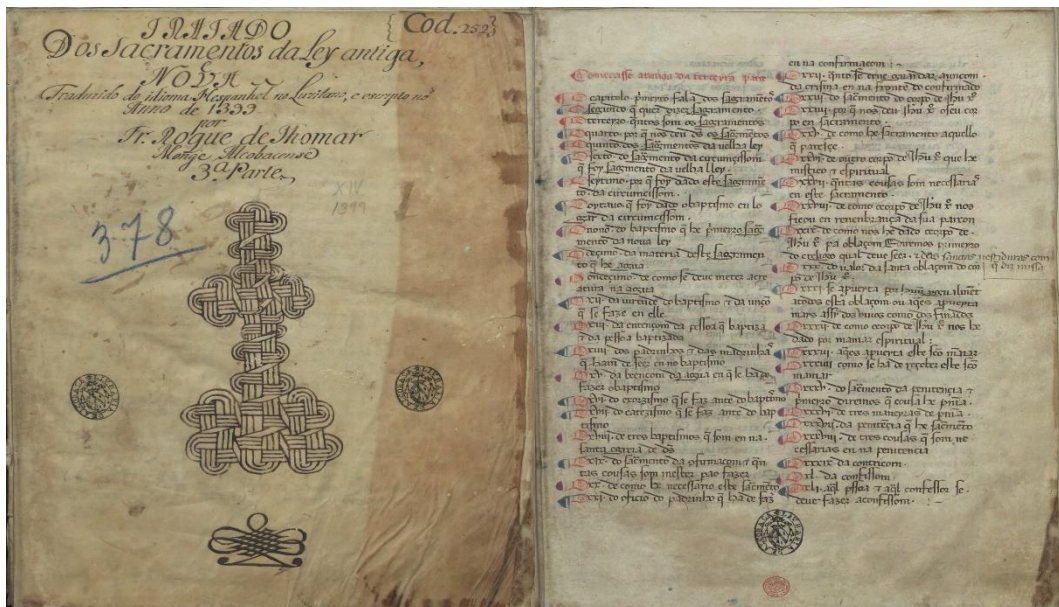 TRATADO
Dos Sacramentos da Ley antiga,
E
NOVA
Traduzido do idioma Hespanhol no Luzitano, e escripto no
Anno de 1399
por
Fr. Roque de Thomar
Monge Alcobacense
3.ª Parte
{Cod. 252}
XIV
1399
378
Começasse a tauoa da terceyra parte
capitulo primeiro fala dos sagramẽtos
segundo q̃ quer dizer sagramento
terceyro quãtos som os sagramentos
quarto por q̃ nos deu ds̃ os sacm̃entos
quinto dos sagramentos da velha ley
sexto do sagramento da circumçissom
q̃ foy sagramento da velha lley
septimo por q̃ foy dado este sagramen
to da circumcissom
oytauo q̃ foy dado o baptismo en lo
gar da circumcissom
nono do baptismo q̃ he p̃meiro sag̃
mento da noua ley
deçimo da materia deste sagramen
to q̃ he agua
onzeçimo de como se deue meter a cre
atura na augua
xii da virtude do baptismo ⁊ da unçõ
q̃ se faze en elle
xiii da entençom da pessoa q̃ baptiza
⁊ da pessoa baptizado
xiiii dos padrinhos ⁊ das madrinhas
q̃ ham de seer en no baptismo
xv da beençom da agua en q̃ se ha de
fazer o baptismo
xvi do exorzismo q̃ se faz ante do baptismo
xvii do catezismo q̃ se faz ante do bap
tismo
xviii de tres baptismos q̃ som en na
santa egreia de ds̃
xix do sacm̃ento da cõfirmaçom ⁊ q̃n
tas cousas som mester pa o fazer
xx de como he necessario este sacm̃ento
xxi do oficio do padrinho q̃ ha de faz
en na confirmaçom
xxii quãto se deue guardar a unçom
da crisma en na fronte do confirmado
xxiii do sacm̃ento do corpo de Jhũ xp̃o
xxiiii por q̃ nos deu Jhũ xp̃o o seu cor
po en sacramento
xxv de como he sacramento aquello
q̃ pareçe
xxvi de outro corpo de Jhũ xp̃o que he
mistico ⁊ espiritual
xxvii quãtas cousas som necessarias
en este sacramento
xxviii de como o corpo de Jhũ xp̃o nos
ficou en renenbrança da sua paixon
xxix de como nos he dado o corpo de
Jhũ xp̃o pa oblaçom
do clerigo qual deue seer ⁊ das sanctas vestiduras com
q̃ diz missa
xxx do da santa oblaçom do cor
po de Jhũ xp̃o
xxxi se apueyta
a todos esta oblaçom ou a q̃es apueyta
mays assy dos viuos como dos finados
xxxii de como o corpo de Jhũ xp̃o nos he
dado por maniar espiritual
xxxiii a q̃es apueyta este sc̃o maniar
xxxiiii como se ha de reçeber este sc̃o
maniar
xxxv do sacm̃ento da penitencia ⁊
p̃meyro diremos q̃ cousa he pñia
xxxvi de tres maneyras de pñia
xxxvii da penitẽcia q̃ he sacm̃ento
xxxviii de tres cousas q̃ som ne
cessarias en na penitencia
xxxix da contriçom
xl da confissom
xli a q̃l pessoa ⁊ a q̃l confessor se
deue fazer a confissom